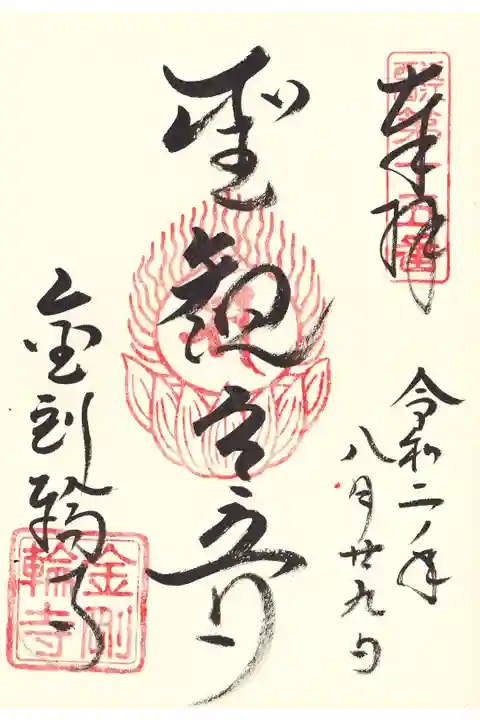 奉拝
第十五番
令和二年
八月廿九日
聖観世音
金剛輪寺
金剛
輪寺